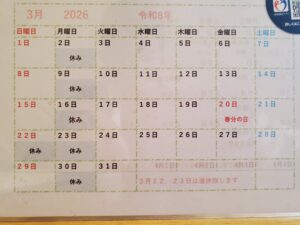 3月 2026 令和8年
日曜日 月曜日 火曜日 水曜日 木曜日 金曜日 土曜日
1日 2日 3日 4日 5日 6日 7日
休み
8日 9日 10日 11日 12日 13日 14日
休み
15日 16日 17日 18日 19日 20日 21日
休み 春分の日
22日 23日 24日 25日 26日 27日 28日
休み 休み
29日 30日 31日 4月1日 4月2日 4月3日
休み 3月22、23日は連休致します